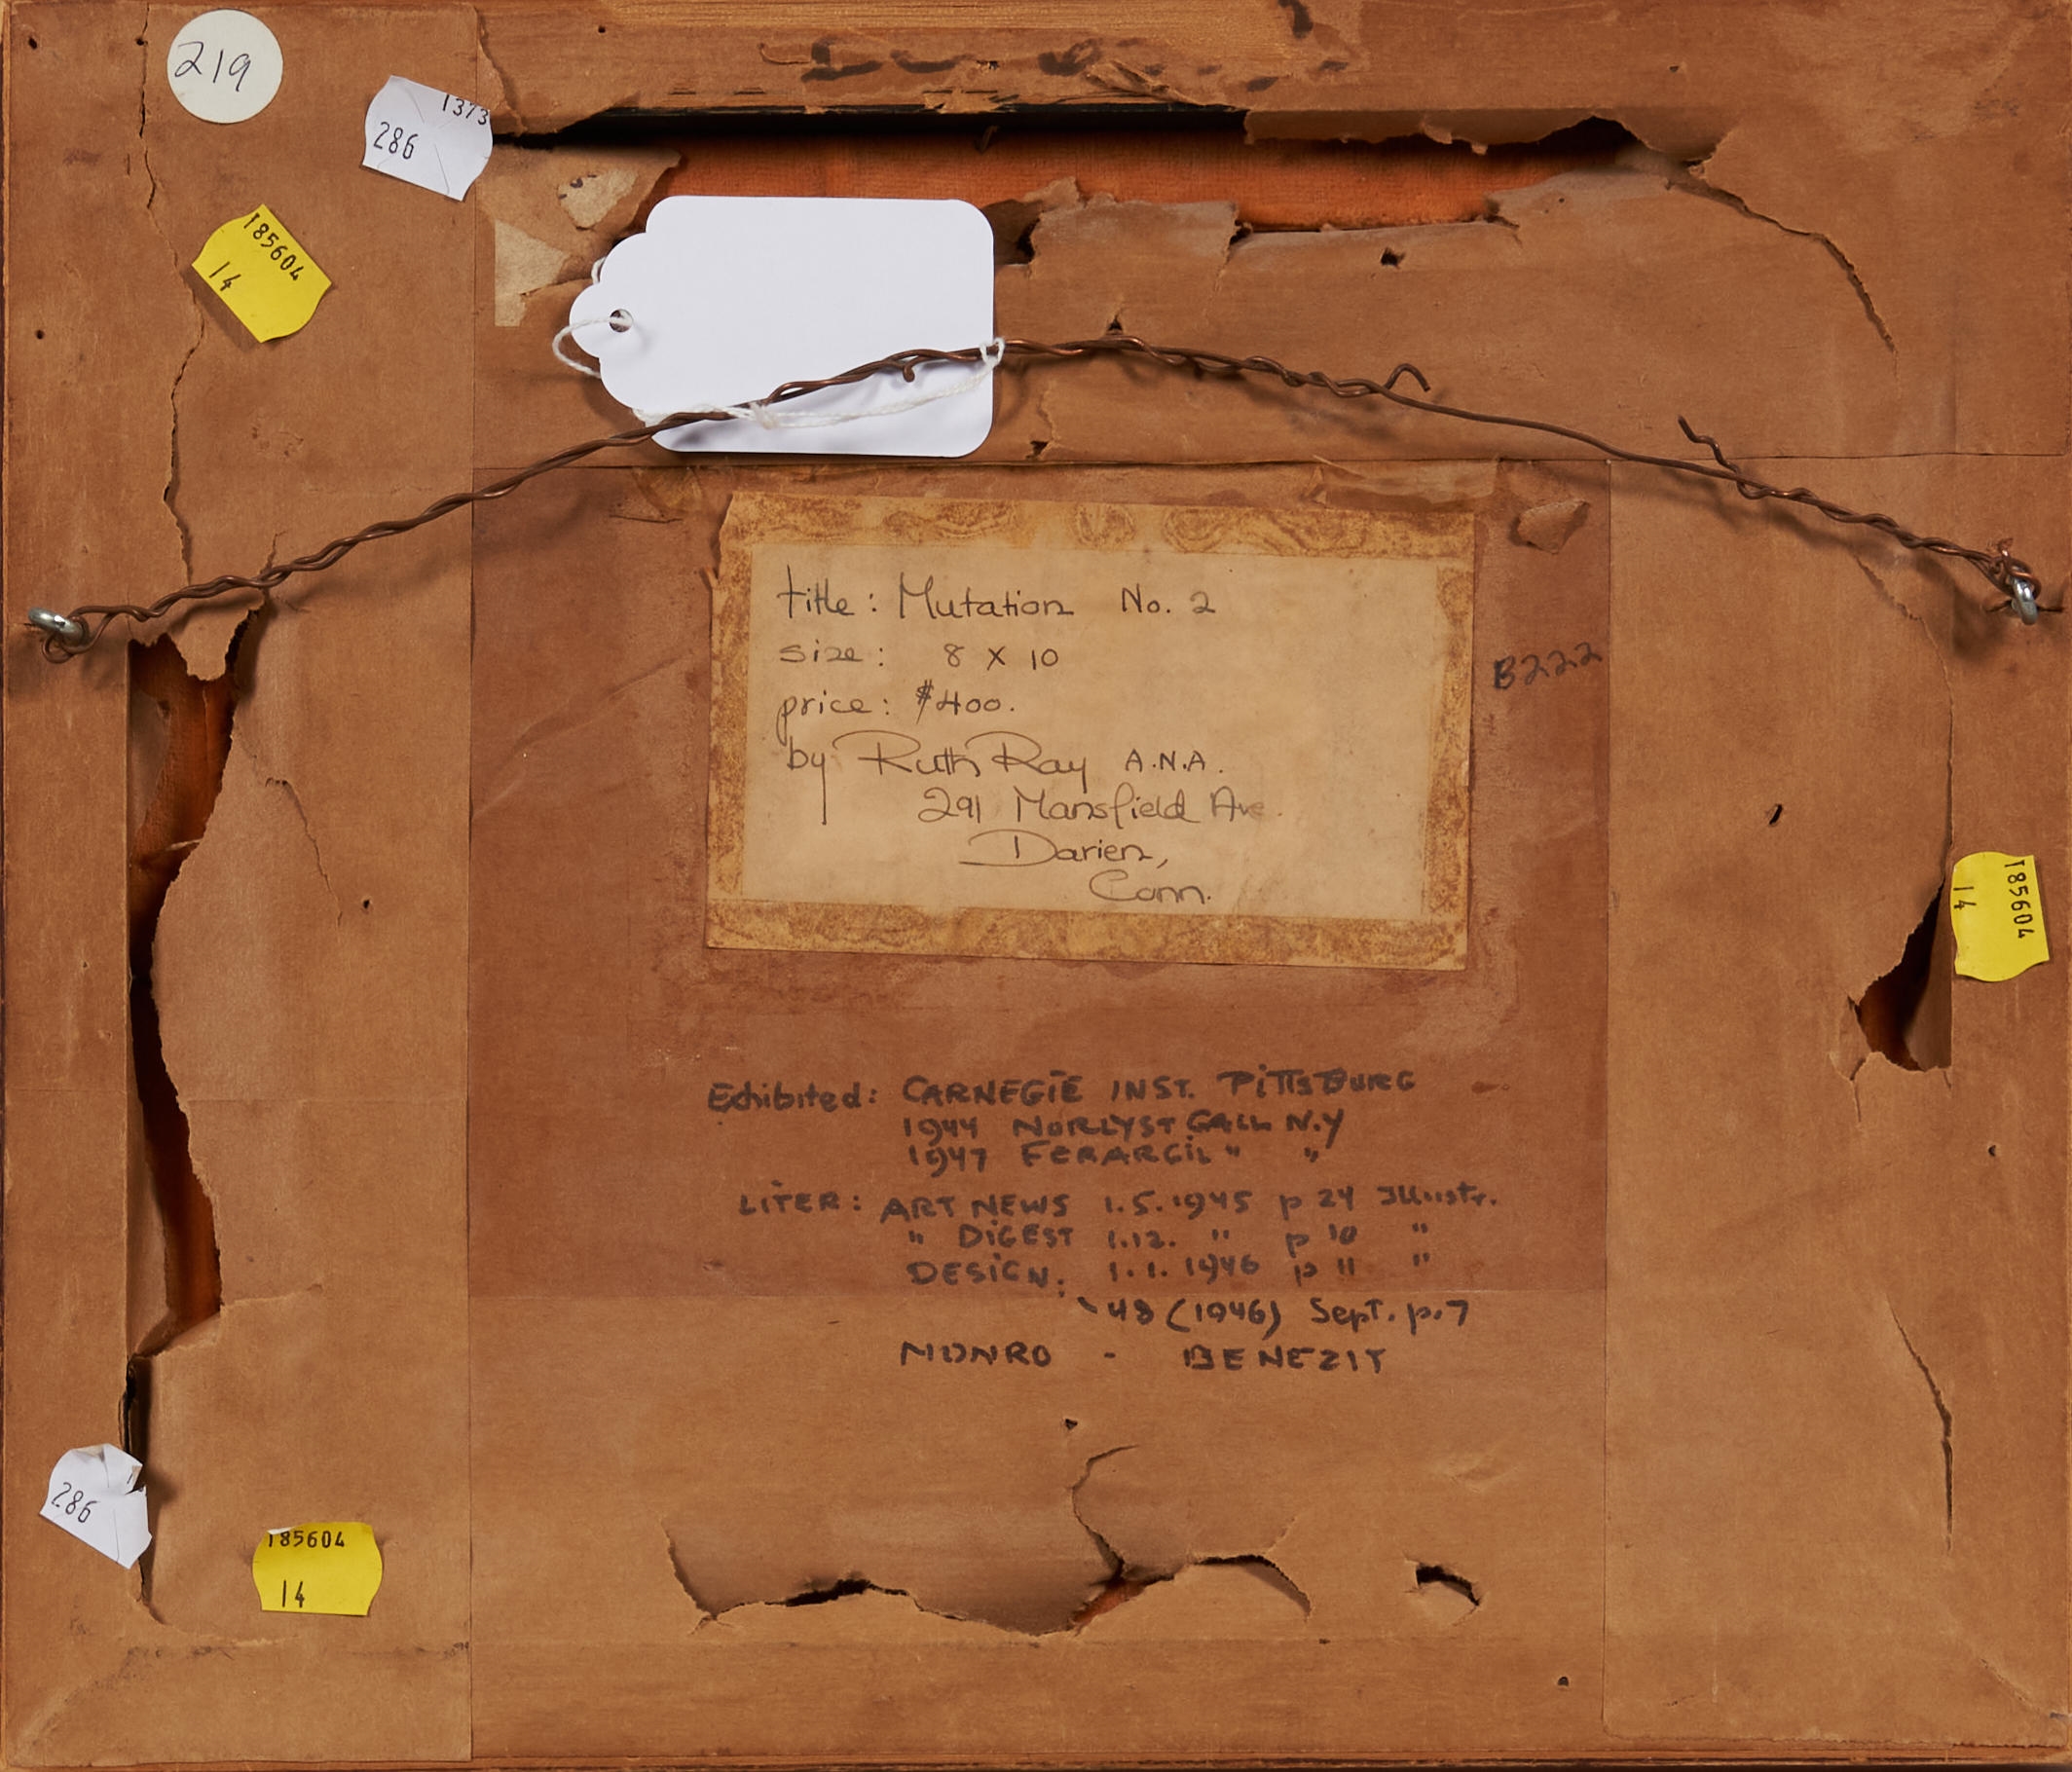 219
1373
286
185604
14
title: Mutation No. 2
size: 8 X 10
price: $400.
by Ruth Ray A.N.A.
291 Mansfield Ave.
Darien,
Conn.
B222
185604
14
Exhibited: CARNEGIE INST. PITTSBURG
1944 NORLYST GALL N.Y
1947 FERARGIL " "
LITER: ART NEWS 1.5.1945 p 24 Illustr.
" DIGEST 1.12. " p 10 "
DESIGN: 1.1.1946 p 11 "
48 (1946) Sept. p.7
MONRO - BENEZIT
286
185604
14